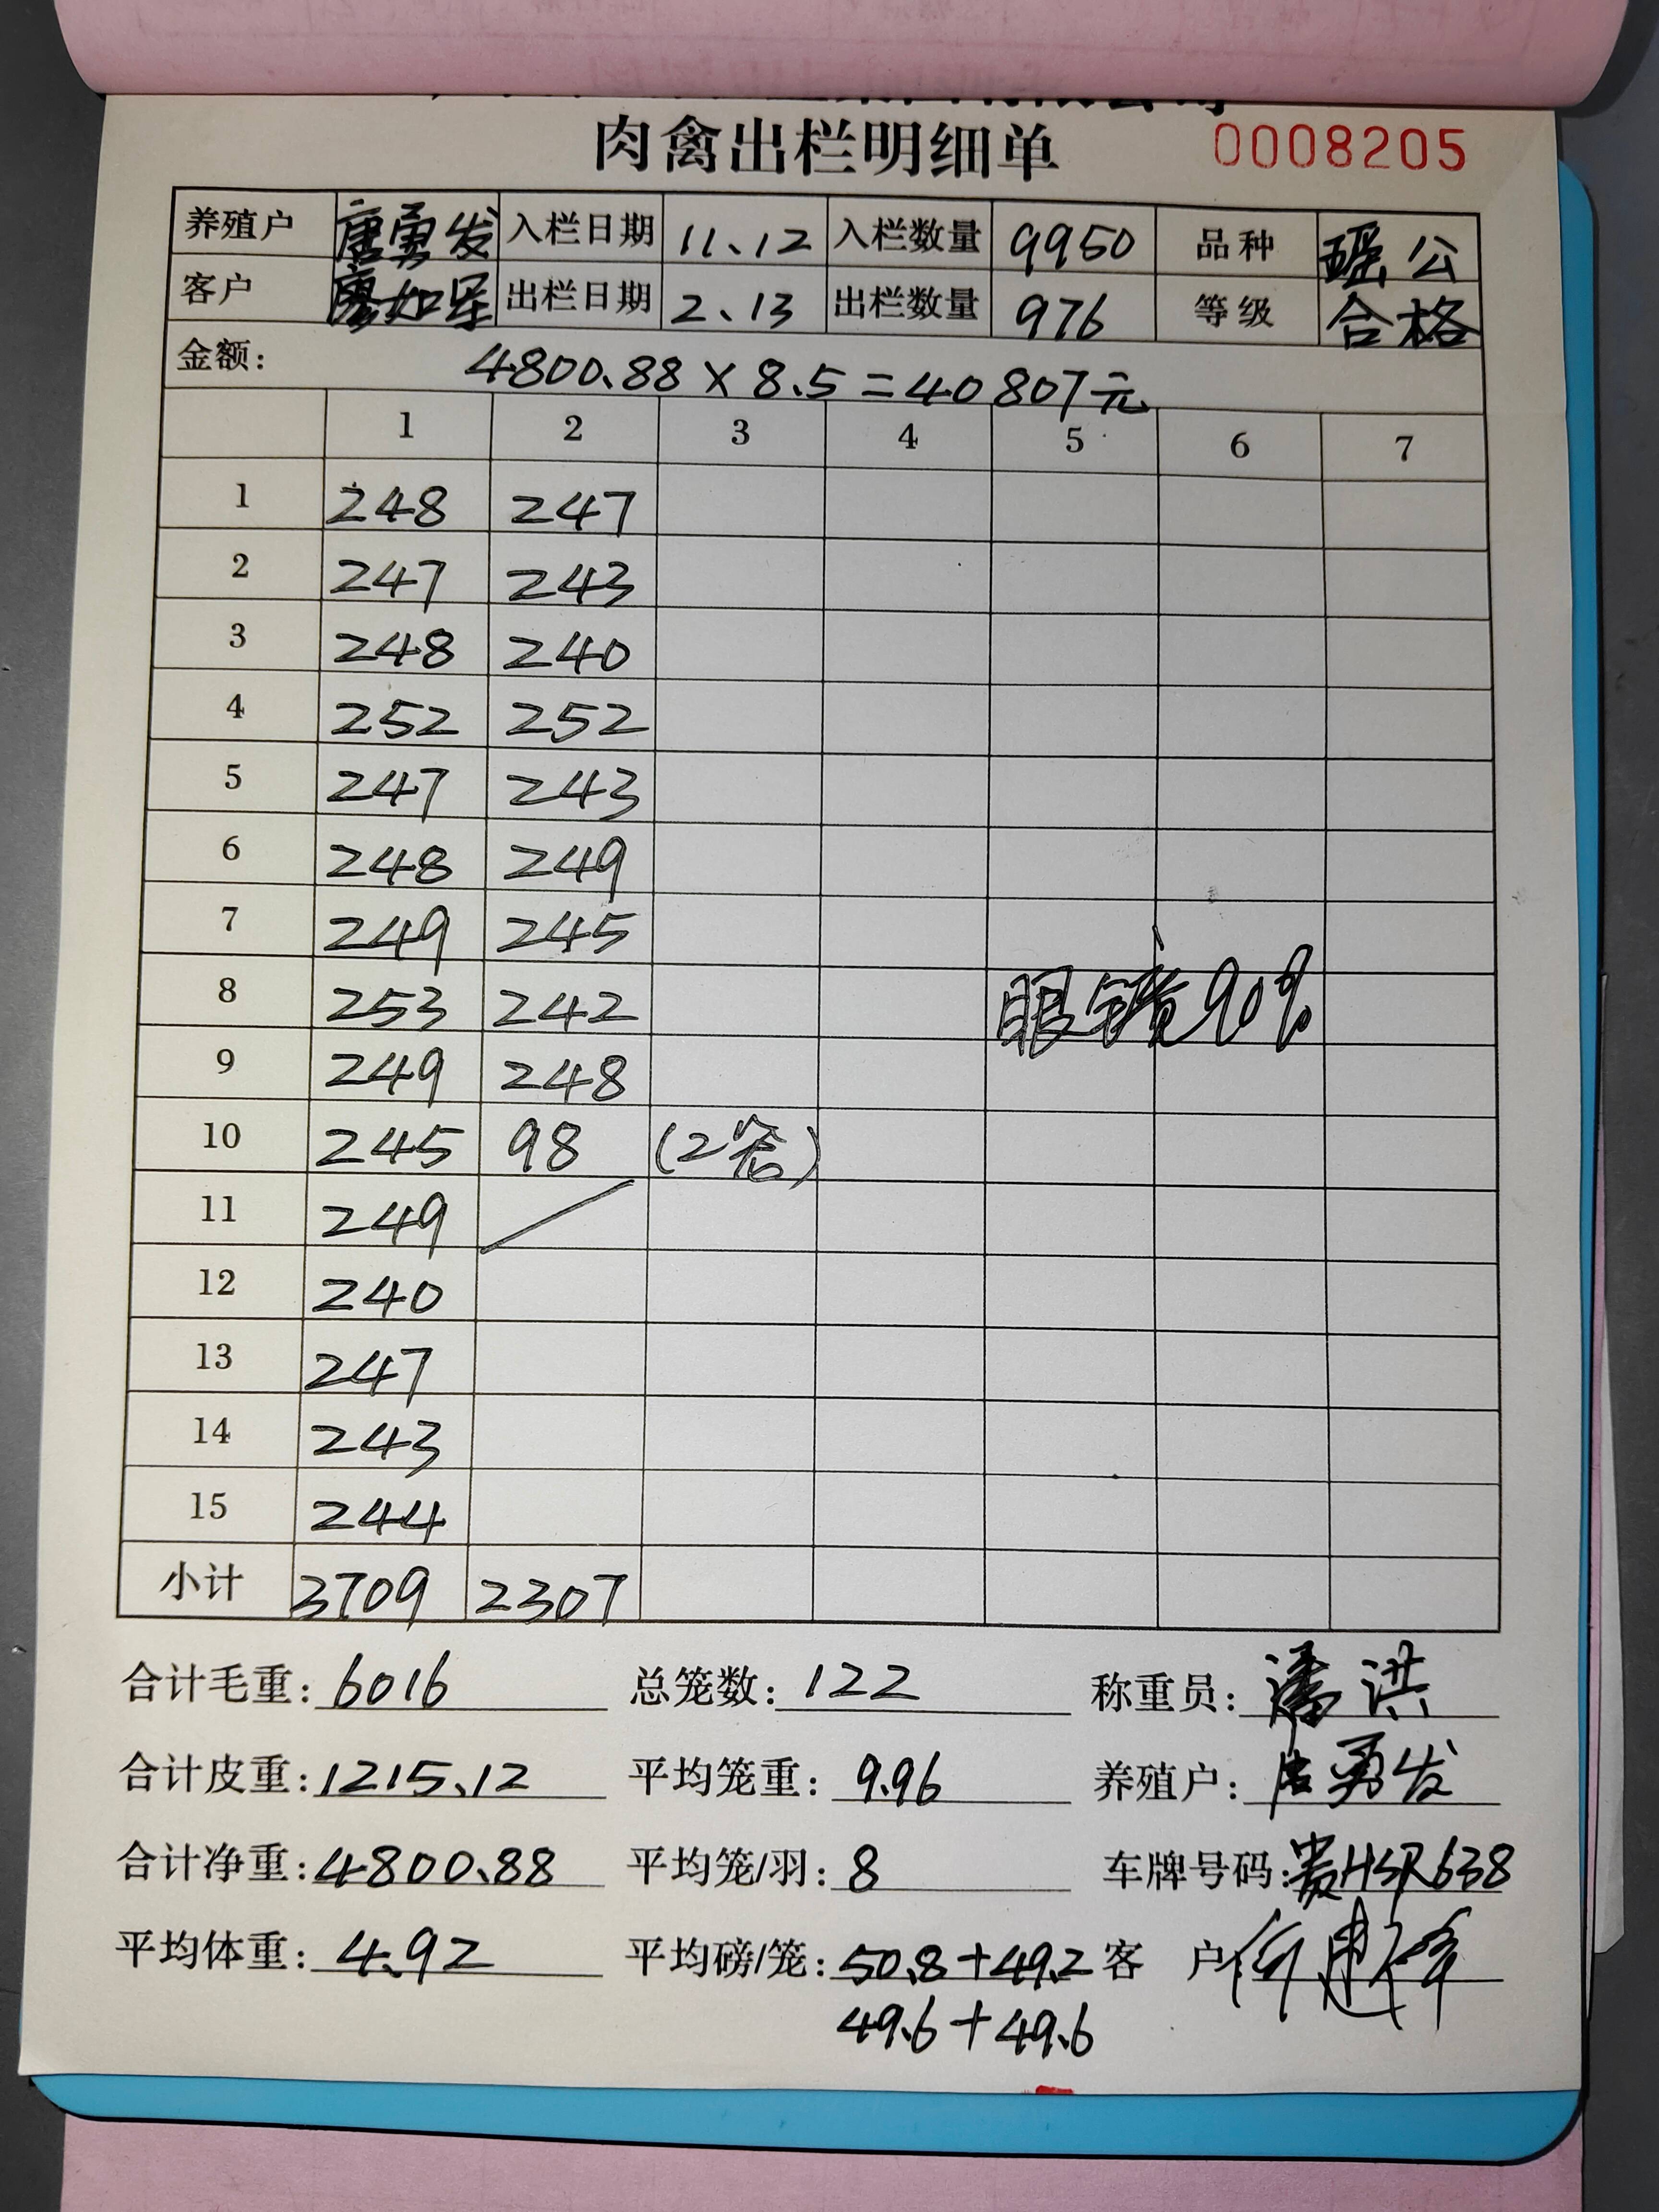 肉禽出栏明细单 0008205
养殖户 唐勇发 入栏日期 11.12 入栏数量 9950 品种 瑶公
客户 廖如军 出栏日期 2.13 出栏数量 976 等级 合格
金额: 4800.88×8.5=40807元
1 2 3 4 5 6 7
1 248 247
2 247 243
3 248 240
4 252 252
5 247 243
6 248 249
7 249 245
8 253 242 眼镜90%
9 249 248
10 245 98 (2笼)
11 249
12 240
13 247
14 243
15 244
小计 3709 2307
合计毛重: 6016 总笼数: 122 称重员: 潘洪
合计皮重: 1215.12 平均笼重: 9.96 养殖户: 唐勇发
合计净重: 4800.88 平均笼/羽: 8 车牌号码: 贵HSR638
平均体重: 4.92 平均磅/笼: 50.8+49.2 客 户
49.6+49.6